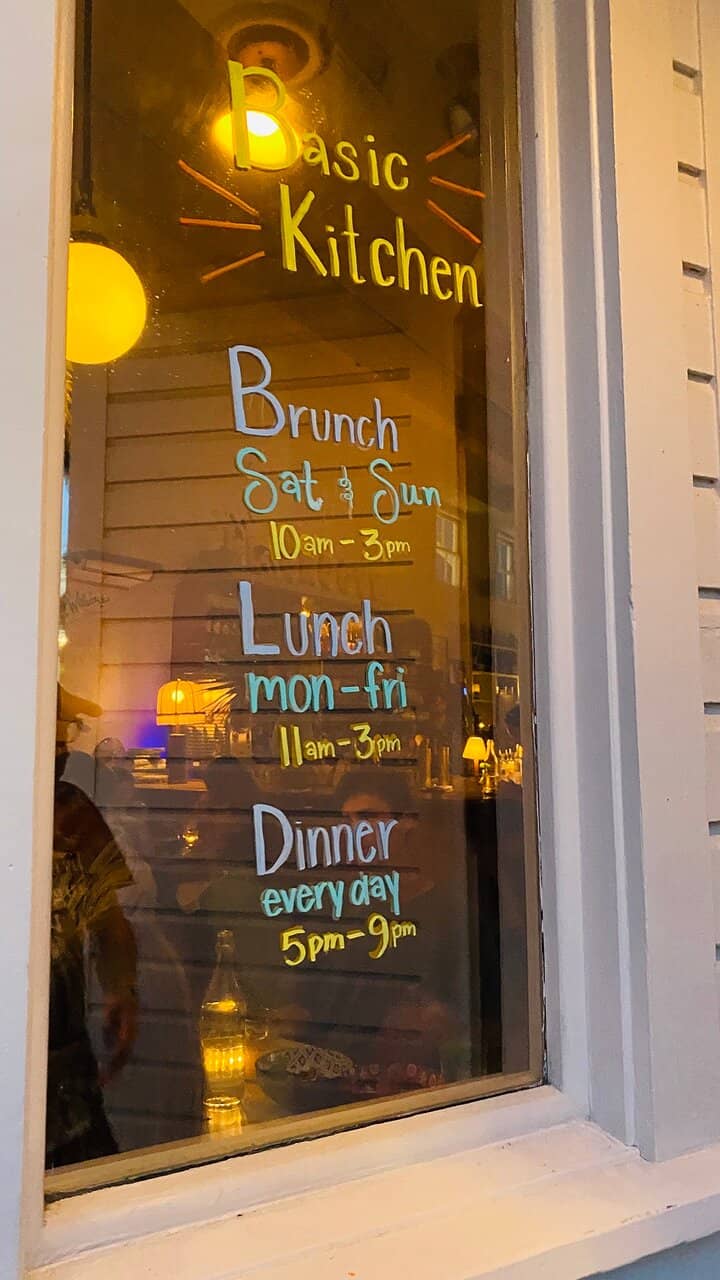 Basic
Kitchen
Brunch
Sat & Sun
10am - 3pm
Lunch
mon - fri
11am - 3pm
Dinner
every day
5pm - 9pm